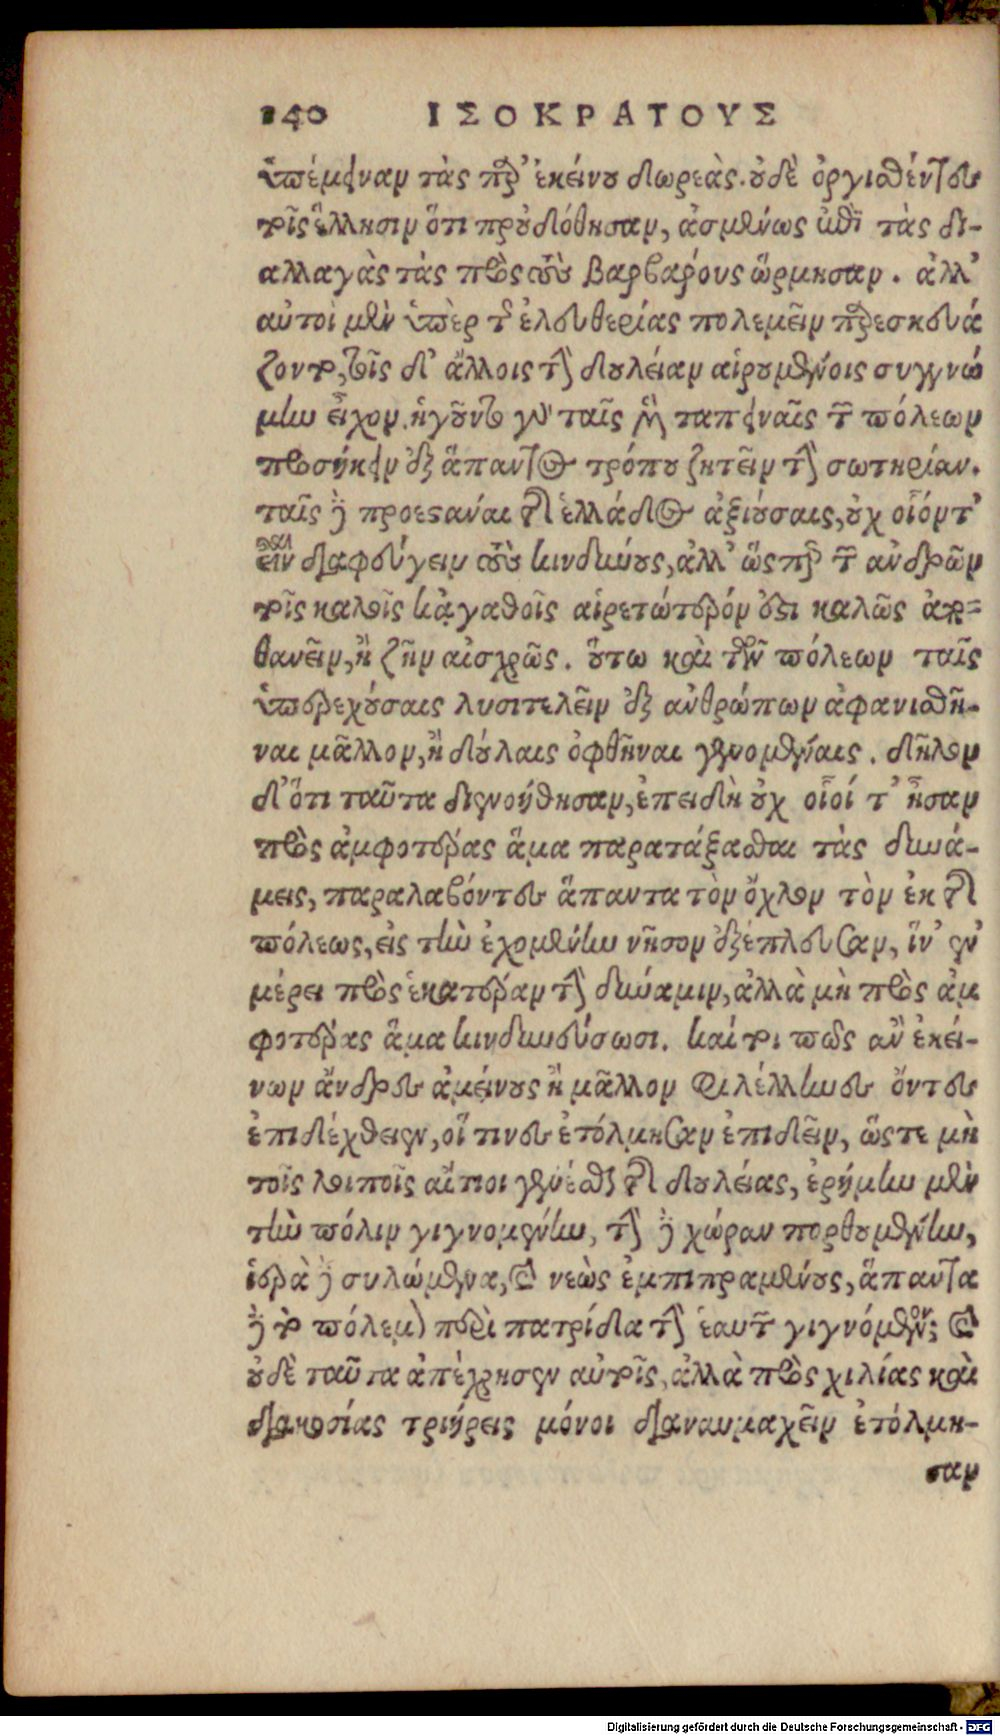 140 ΙΣΟΚΡΑΤΟΥΣ
ὑπέμειναν τὰς παρ' ἐκείνου δωρεὰς. οὐδὲ ὀργισθέντες
τοῖς ἕλλησιν ὅτι προυδόθησαν, ἀσμένως ἐπὶ τὰς δι-
αλλαγὰς τὰς πρὸς τοὺς βαρβαρ́ους ὥρμησαν. ἀλλ'
αὐτοὶ μὲν ὑπὲρ τῆς ἐλευθερίας πολεμεῖν παρεσκευά
ζοντο, τοῖς δ' ἄλλοις τὴν δουλείαν αἱρουμένοις συγγνώ
μην εἶχον. ἡγοῦντο γὰρ ταῖς μὲν ταπειναῖς τῶν πόλεων
προσήκειν ἐξ ἅπαντος τρόπου ζητεῖν τὴν σωτηρίαν.
ταῖς δὲ προεστάναι τῆς ἑλλάδος ἀξιούσαις, οὐχ οἷόντ'
εἶναι διαφεύγειν τοὺς κινδύνους, ἀλλ' ὥσπερ τῶν ἀνδρῶν
τοῖς καλοῖς κἀγαθοῖς αἱρετώτερόν ἐστι καλῶς ἀπο-
θανεῖν, ἢ ζῆν αἰσχρῶς. οὕτω καὶ τῶν πόλεων ταῖς
ὑπερεχούσαις λυσιτελεῖν ἐξ ἀνθρώπων ἀφανισθῆ-
ναι μᾶλλον, ἢ δούλαις ὀφθῆναι γενομέναις. δῆλον
δ' ὅτι ταῦτα διενοήθησαν, ἐπειδὴ οὐχ οἷοί τ' ἦσαν
πρὸς ἀμφοτέρας ἅμα παρατάξασθαι τὰς δυνά-
μεις, παραλαβόντες ἅπαντα τὸν ὄχλον τὸν ἐκ τῆς
πόλεως, εἰς τὴν ἐχομένην νῆσον ἐξέπλευσαν, ἵν' ἐν
μέρει πρὸς ἑκατέραν τὴν δύναμιν, ἀλλὰ μὴ πρὸς ἀμ
φοτέρας ἅμα κινδυνεύσωσι. καίτοι πῶς ἂν ἐκεί-
νων ἄνδρες ἀμείνους ἢ μᾶλλον φιλέλληνες ὄντες
ἐπιδειχθεῖεν, οἵ τινες ἐτόλμησαν ἐπιδεῖν, ὥστε μὴ
τοῖς λοιποῖς αἴτιοι γενέσθαι τῆς δουλείας, ἐρήμην μὲν
τὴν πόλιν γιγνομένην, τὴν δὲ χώραν πορθουμένην,
ἱερὰ δὲ συλώμενα, καὶ νεὼς ἐμπιπραμένους, ἅπαντα
δὲ τὸν πόλεμον περὶ πατρίδα τὴν ἑαυτῶν γιγνόμενον; καὶ
οὐδὲ ταῦτα ἀπέχρησεν αὐτοῖς, ἀλλὰ πρὸς χιλίας καὶ
διακοσίας τριήρεις μόνοι διαναυμαχεῖν ἐτόλμη-
σαν
Digitalisierung gefördert durch die Deutsche Forschungsgemeinschaft - DFG